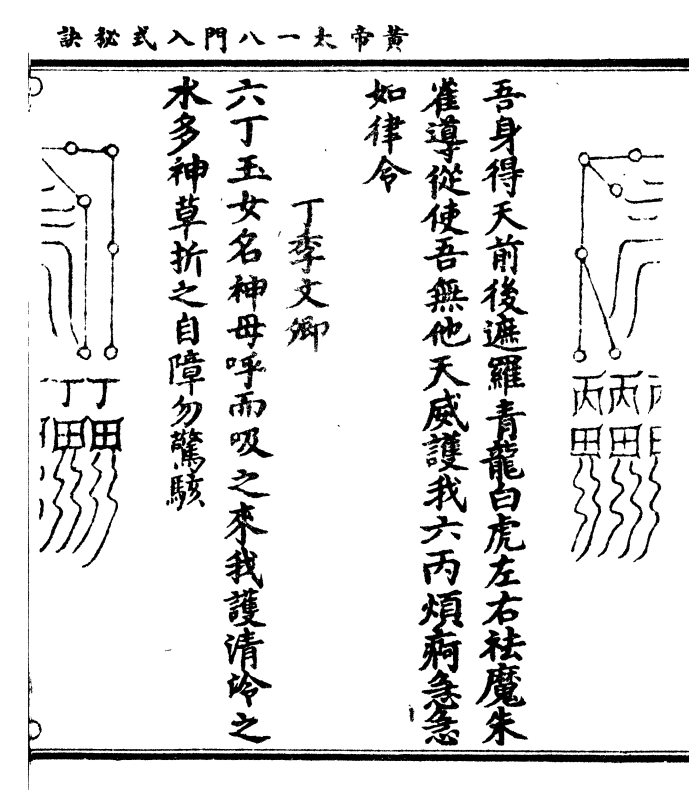 黃帝太一八門入式秘訣
丙丙丙
吾身得天前後遮羅青龍白虎左右祛魔朱
雀導從使吾無他天威護我六丙煩痾急急
如律令
丁季文卿
六丁玉女名神母呼而吸之來我護清冷之
水多神草折之自障勿驚駭
丁丁